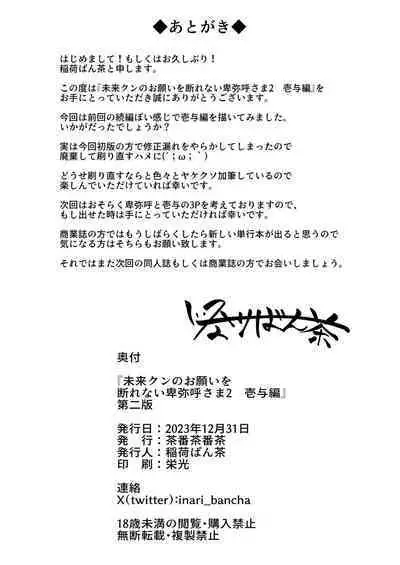 ◆あとがき◆
はじめまして！もしくはお久しぶり！
稲荷ばん茶と申します。
この度は『未来クンのお願いを断れない卑弥呼さま2　壱与編』を
お手にとっていただき誠にありがとうございます。
今回は前回の続編ぽい感じで壱与編を描いてみました。
いかがだったでしょうか？
実は今回初版の方で修正漏れをやらかしてしまったので
廃棄して刷り直すハメに(´；ω；｀)
どうせ刷り直すならと色々とヤケクソ加筆しているので
楽しんでいただけていれば幸いです。
次回はおそらく卑弥呼と壱与の3Pを考えておりますので、
もし出せた時は手にとっていただければ幸いです。
商業誌の方ではもうしばらくしたら新しい単行本が出ると思うので
気になる方はそちらもお願い致します。
それではまた次回の同人誌もしくは商業誌の方でお会いしましょう。
ばん茶
奥付
『未来クンのお願いを
断れない卑弥呼さま2　壱与編』
第二版
発行日：2023年12月31日
発　行：茶番茶番茶
発行人：稲荷ばん茶
印　刷：栄光
連絡
X(twitter):inari_bancha
18歳未満の閲覧・購入禁止
無断転載・複製禁止